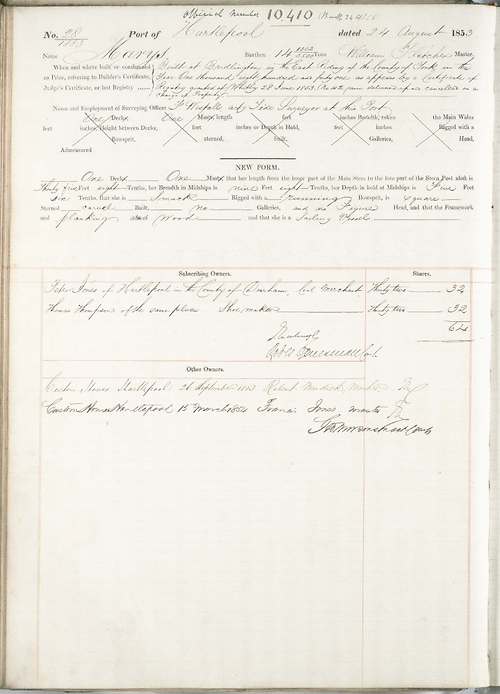 Official Number 10,410
No. 28/1853 Port of Hartlepool dated 24 August 1853
Name Mary Burthen 14 Tons William Master
When and where built or condemned Built at Bridlington in the East Riding of the County of York in the
as Prize, referring to Builder's Certificate, Year One thousand eight hundred and forty one as appears by a Certificate of
Judge's Certificate, or last Registry Registry granted at Whitby 28 June 1853 No. delivered up on cancelled on a
change of Property
Name and Employment of Surveying Officer acty Tide Surveyor at this Port
One Decks One Masts length feet inches Breadth, taken the Main Wales
feet inches, Height between Decks, feet inches or Depth in Hold, feet inches Rigged with a
Bowsprit, sterned, built, Galleries, Head,
Admeasured
NEW FORM.
One Decks One Mast that her length from the inner part of the Main Stem to the fore part of the Stern Post aloft is
Thirty five Feet eight Tenths, her Breadth in Midships is nine Feet eight Tenths, her Depth in hold at Midships is Five Feet
six Tenths, that she is Smack Rigged with a running Bowsprit, is square
Sterned carvel Built, no Galleries, and no Figure Head, and that the Framework
and planking are Wood and that she is a Sailing Vessel
Subscribing Owners. Shares.
Peter Jones of Hartlepool in the County of Durham, Coal Merchant Thirty two 32
Thomas Thompson of the same place Shoe maker Thirty two 32
64
Other Owners.
Custom House Hartlepool 26 September 1853 Robert Master
Custom House Hartlepool 15 March 1854 Francis Jones master